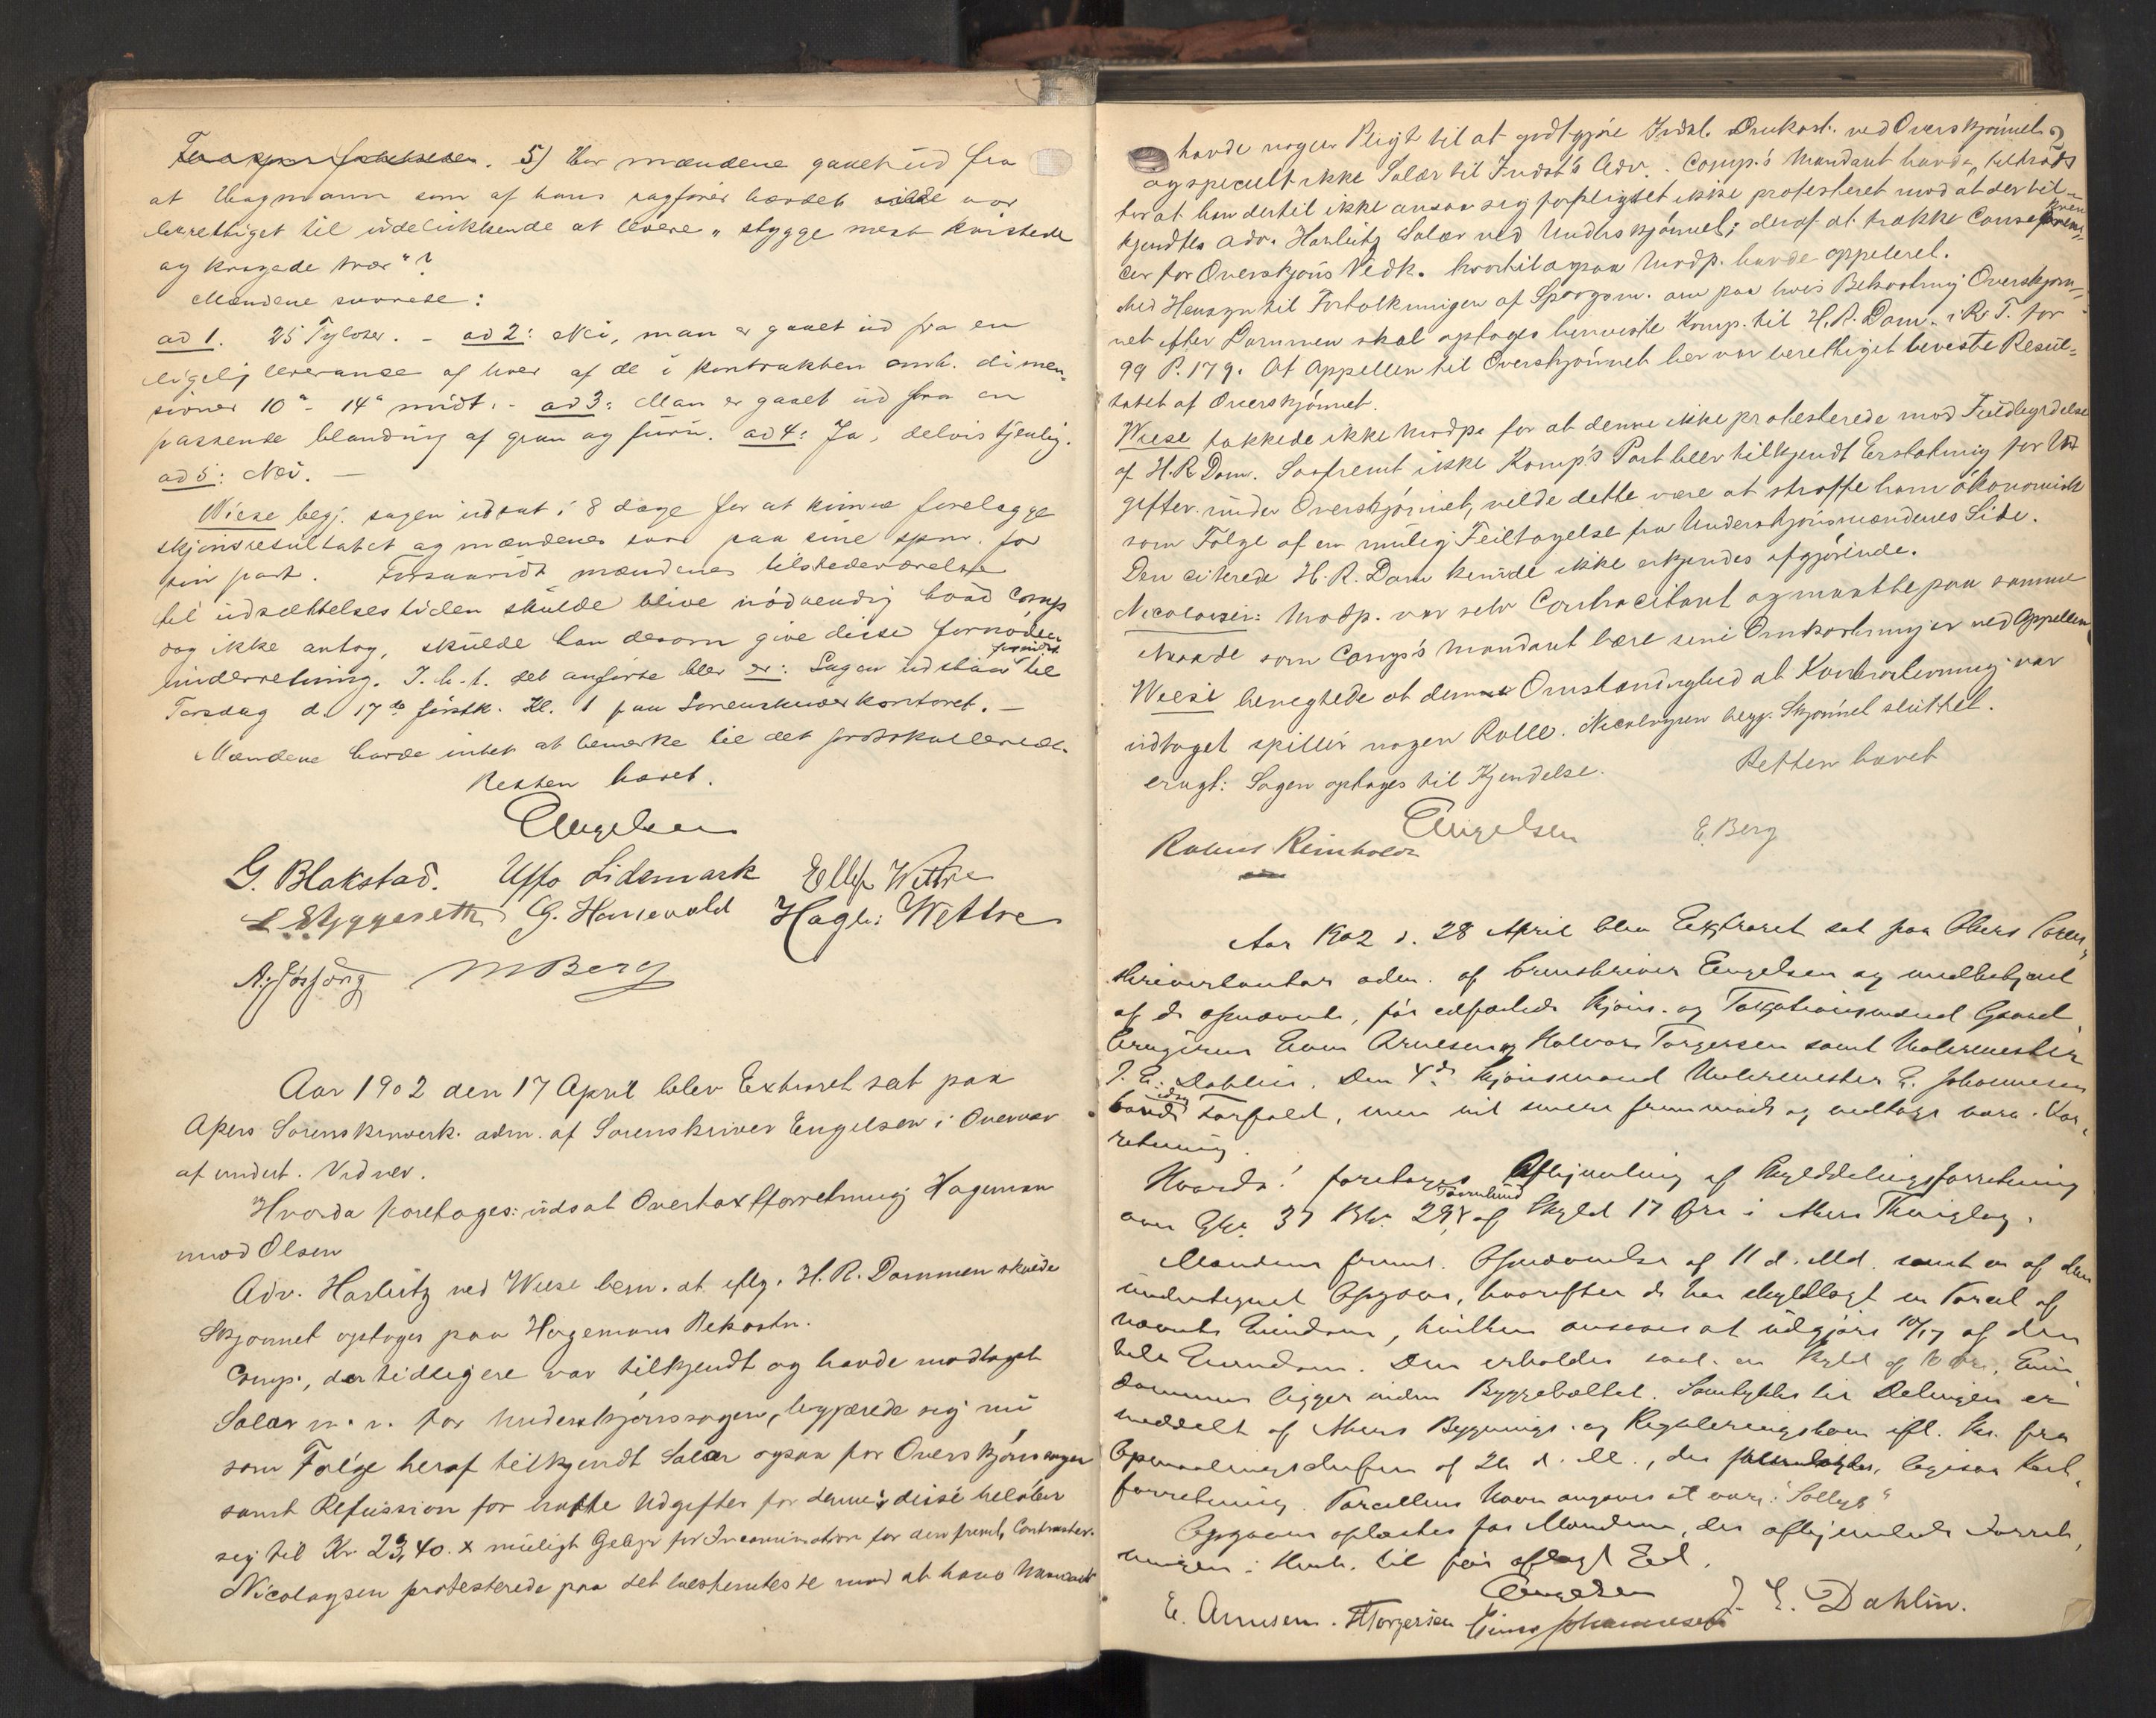 5) Har mændene gaaet ud fra
at Hagmann som af hans sagfører hævdet var
berettiget til udelukkende at levere "stygge mest kvistede
og krogede trær"?
Mændene svarede:
ad 1. 25 Tylvter. - ad 2: Nei, man er gaaet ud fra en
ligelig leverance af hver af de i kontrakten omh. dimen-
sioner 10" - 14" midt. - ad 3: Man er gaaet ud fra en
passende blanding af gran og furu. ad 4: Ja, delvis tjenlig.
ad 5: Nei. -
Wiese begj. sagen udsat i 8 dage for at kunne forelægge
skjønsresultatet og mændenes svar paa sine spm. for
sin part. Forsaavidt mændenes tilstedeværelse
til udsættelsestiden skulde blive nødvendig hvad Comp
dog ikke antog, skulde han derom give disse fornøden
underretning. I. h. t. det anførte blev er: Sagen udstaar til
Torsdag d. 17de førstk. Kl. 1 paa Sorenskriverkontoret. -
Mændene havde intet at bemærke til det protokollerede.
Retten hævet.
Engelsen
G. Blakstad. Uffo Lidemark Ellef Wettre
L Styggeseth G. Hanevold Hagb: Wettre
M Berg
Aar 1902 den 17 April blev Extraret sat paa
Akers Sorenskriverk. adm. af Sorenskriver Engelsen i Overvær
af undert. Vidner.
Hvorda foretoges: udsat Overtaxtforretning Hageman
mod Olsen
Adv. Harbitz ved Wiese bem. at eflg. H. R. Dommen skulde
Skjønnet optages paa Hagemans Bekostn.
Comp., der tidligere var tilkjendt og havde modtaget
Salær m. v. for Underskjønssagen, begjærede sig nu
som Følge heraf tilkjendt Salær ogsaa for Overskjønssagen
samt Refusion for havte Udgifter for denne; disse beløber
sig til Kr. 23,40. x muligt Gebyr for Incamination for den freml. Contrastevn.
Nicolaysen protesterede paa det bestemteste mod at hans Mandant
havde nogen Pligt til at godtgjøre Indst. Omkost. ved Overskjønnet
og specielt ikke Salær til Indst's Adv. Comp.'s Mandant havde, tiltrods
for at han dertil ikke ansaa sig forpligtet ikke protesteret mod at der til-
kjendtes Adv. Harbitz Salær ved Underskjønnet; deraf at trække Conseqven-
ser for Overskjøns Vedk. hvortil ogsaa Modp. havde appelleret.
Med Hensyn til Fortolkningen af Spørgsm. om paa hvis Bekostning Overskjøn-
net efter Dommen skal optages henviste Komp. til H. R. Dom. i R. T. for
99 P. 179. At Appellen til Overskjønnet her var berettiget beviste Resul-
tatet af Overskjønnet.
Wiese takkede ikke Modp. for at denne ikke protesterede mod Fuldbyrdelse
af H. R Dom. Saafremt ikke Komp's Part blev tilkjendt Erstatning for Ud-
gifter under Overskjønnet, vilde dette være at straffe ham økonomisk
som Følge af en mulig Feiltagelse fra Underskjønsmændenes Side.
Den citerede H. R. Dom kunde ikke erkjendes afgjørende.
Nicolaysen: Modp. var selv Contracitant og maatte paa samme
Maade som Comp's Mandant bære sine Omkostninger ved Appellen
Wiese benegtede at denne Omstændighed at Kontrastevning var
udtaget spiller nogen Rolle. Nicolaysen begj. Skjønnet sluttet.
eragt: Sagen optages til Kjendelse. Retten hævet
Engelsen E. Berg
Reinholdt
Aar 1902 d. 28 April blev Extraret sat paa Akers Soren-
skriverkontor adm. af Sorenskriver Engelsen og medbetjent
af de opnævnte, før edfæstede Skjøns- og Taxationsmænd Gaard-
brugerne Even Arnesen og Halvor Torgersen samt Malermester
J. E. Dahlin. Den 4de Skjønsmand Murermester E. Johannesen
havde Forfald, men vil senere fremmøde og vedtage nærv. For-
retning.
Hvorda: foretoges Afhjemling af Skylddelingsforretning
over Gbr. 37 Bbr. 29, Tømlund af Skyld 17 Øre i Akers Thinglag.
Mændene freml. Opnævnelse af 11 d. Md. samt en af dem
undertegnet Opgave, hvorefter de har skyldlagt en Parcel af
nævnte Eiendom, hvilken ansees at udgjøre 10/17 af den
hele Eiendom. Den erholder saal. en Skyld af 10 Øre. Eien-
dommen ligger inden Byggebæltet. Samtykke til Delingen er
meddelt af Akers Bygnings- og Reguleringskom. ifl. Skr. fra
Opmaalingschefen af 26 d. M., der fremlagdes, ligesom Kart-
forretning. Parcellens Navn angaves at være: "Solbyg"
Opgaven oplæstes for Mændene, der afhjemlede Forret-
ningen i Henh. til før aflagt Ed.
Engelsen
E. Arnesen. H Torgersen Johannesen J. E. Dahlin.